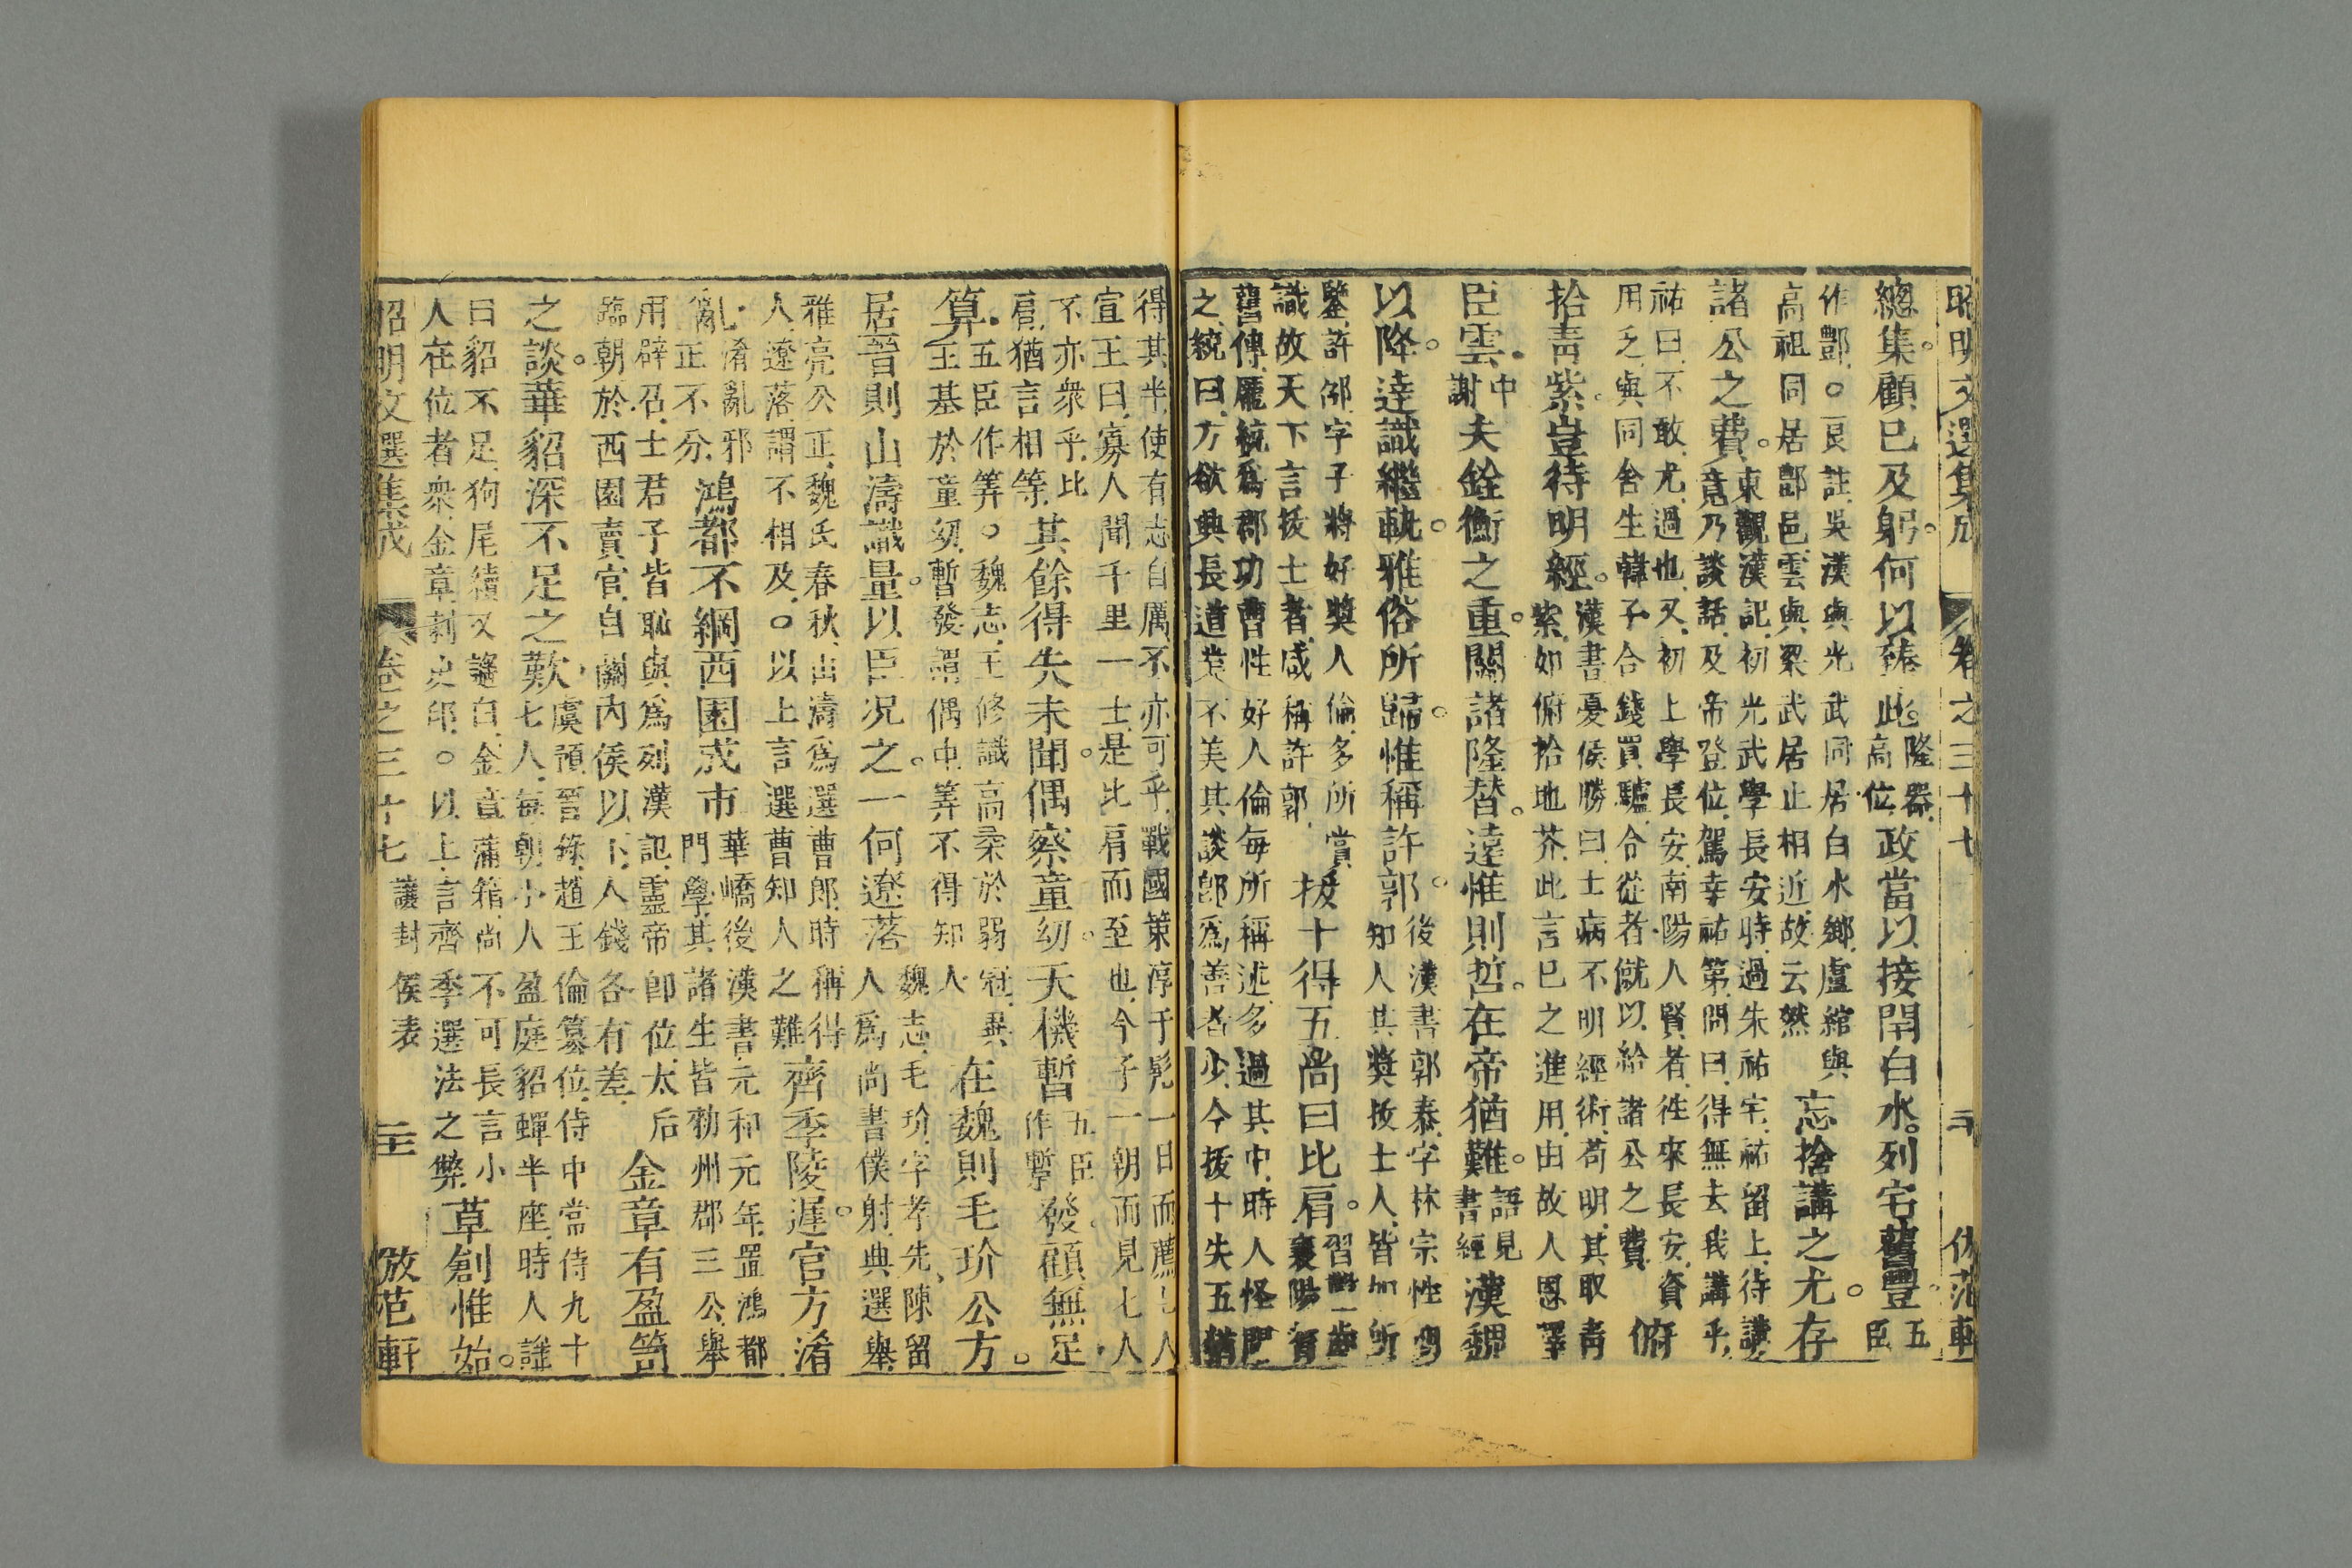 昭明文選集成 卷之三十七
總集。顧已及躬。何以臻此。隆器高位。政當以接閈白水。列宅舊豐。五臣
作酆。○良註吳漢與光武同居白水鄉盧綰與
高祖同居酆邑雲與梁武居止相近故云然
忘捨講之尤。存
諸公之費。
東觀漢記初光武學長安時過朱祐宅祐留上待講
竟乃談話及帝登位駕幸祐第問曰得無去我講乎
祐曰不敢尤過也又初上學長安南陽人賢者徃來長安資
用乏與同舍生韓子合錢買驢合從者僦以給諸公之費
俯
拾靑紫。豈待明經。
漢書憂侯勝曰士病不明經術苟明其取靑
紫如俯拾地芥此言已之進用由故人恩澤
臣雲。中謝夫銓衡之重。關諸隆替。遠惟則哲。在帝猶難。語見書經漢魏
以降。達識繼軌。雅俗所歸。惟稱許郭。
後漢書郭泰字林宗性明
知人其奬拔士人皆如所
鑒許邵字子將好奬人倫多所賞
識故天下言拔士者咸稱許郭
拔十得五。尚曰比肩。
習鑿齒
襄陽耆
舊傳龐統爲郡功曹性好人倫每所稱述多過其中時人怪問
之統曰方欲興長道業不美其談卽爲善者少今拔十失五猶
得其半使有志自厲不亦可乎戰國策淳于髡一日而薦七人
宣王曰寡人聞千里一士是比肩而至也今子一朝而見七人
不亦衆乎比
肩猶言相等
其餘得失未聞。偶察童幼。天機暫五臣作蹔發。顧無足
算。
五臣作筭。○魏志王修識高柔於弱冠異
王基於童幼暫發謂偶中筭不得知人
在魏則毛玠公方。
居晉則山濤識量。以臣况之。一何遼落
魏志毛玠字孝先陳留
人爲尚書僕射典選舉
雅亮公正魏氏春秋山濤爲選曹郎時稱得
人遼落謂不相及。○以上言選曹知人之難
齊季陵遲。官方淆
亂。
淆亂邪
正不分
鴻都不綱。西園成市
華嶠後漢書元和元年置鴻都
門學其諸生皆勅州郡三公舉
用辟召士君子皆恥與爲列漢記靈帝卽位太后
臨朝於西園賣官自關內侯以下入錢各有差
金章有盈笥
之談。華貂深不足之歎。
虞預晉錄趙王倫篡位侍中常侍九十
七人每朝小人盈庭貂蟬半座時人謠
曰貂不足狗尾續又謠曰金章滿箱尚不可長言小
人在位者衆金章刺史印。○以上言齊季選法之弊
草創惟始。
昭明文選集成 卷之三十七 讓封侯表 二十 倣范軒